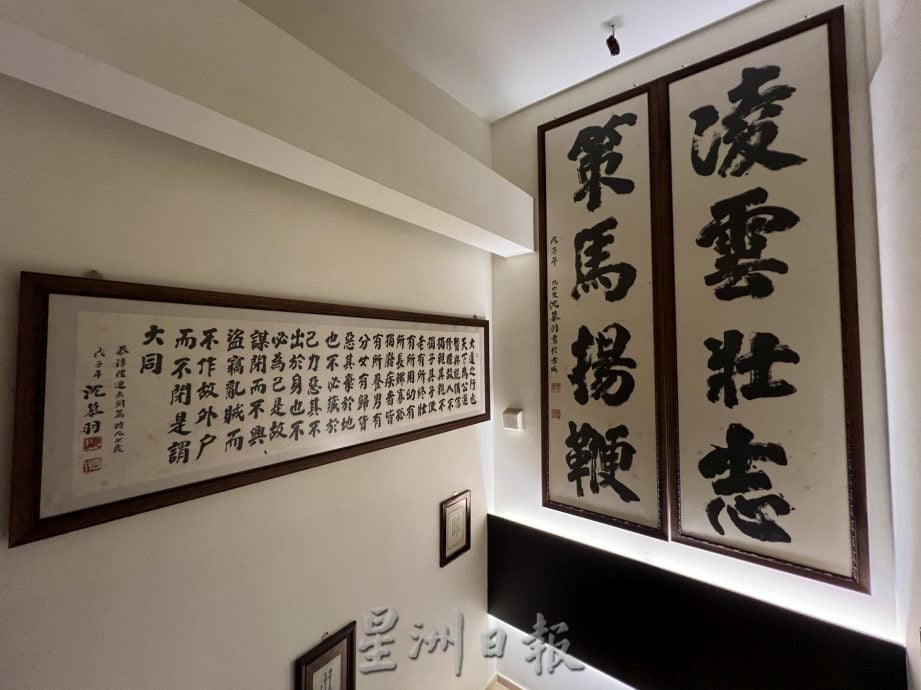 凌雲壯志
策馬揚鞭
戊子年 沈慕羽書於古城
大道之行也
天下為公選
賢與能講信
修睦故人不
獨親其親不
獨子其子使
老有所終壯
有所用幼有
所長鰥寡孤
獨廢疾者皆
有所養男有
分女有歸貨
惡其棄於地
也不必藏於
己力惡其不
出於身也不
必為己是故
謀閉而不興
盜竊亂賊而
不作故外户
而不閉是謂
大同
恭錄禮運大同篇時九七歲
戊子年 沈慕羽
星洲日報